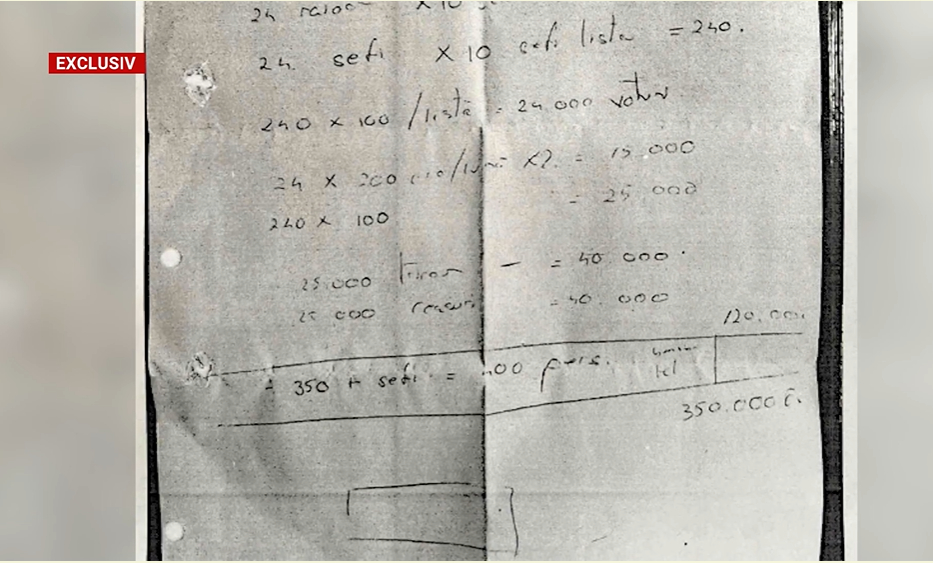 EXCLUSIV
24 raioa x 10
24 sefi x 10 sefi lista = 240.
240 x 100 / listă = 24 000 votur
24 x 200 x 2 = 15 000
240 x 100 = 25 000
25 000 - = 40 000.
25 000 = 40 000
120.000
- 350 + sefi = 400 pers. tel
350.000